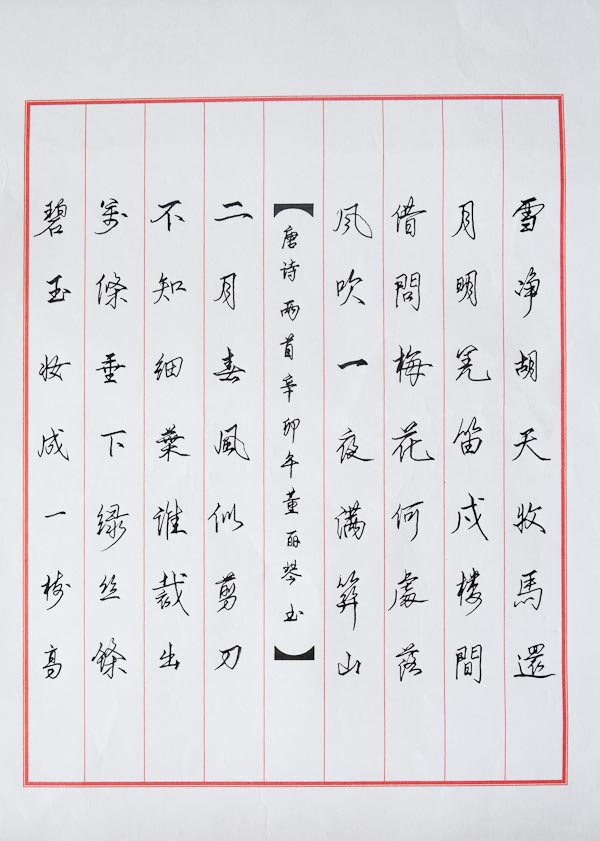 雪净胡天牧馬還
月明羌笛戍楼間
借問梅花何處落
风吹一夜满關山
【唐诗两首辛卯年董丽琴书】
二月春風似剪刀
不知细葉谁裁出
萬條垂下绿丝絛
碧玉妆成一树高